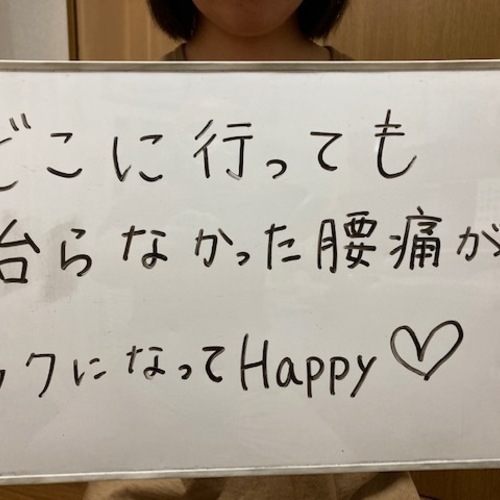 どこに行っても
治らなかった腰痛が
ラクになってHappy♡